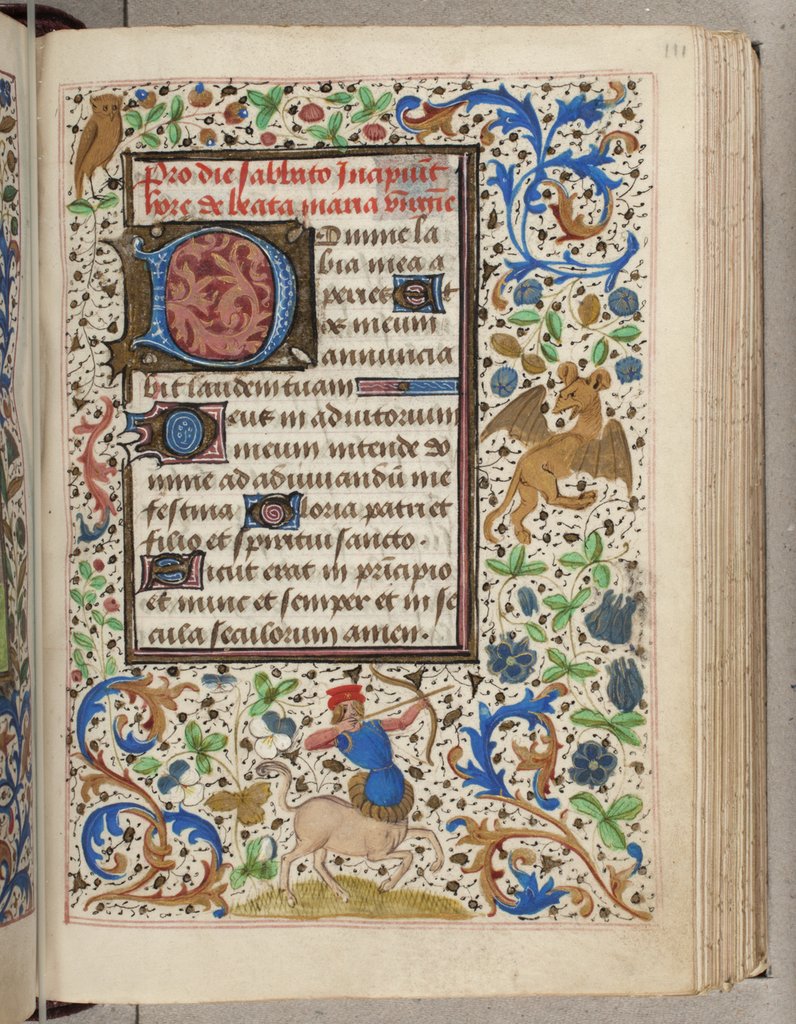 111
Pro die sabbato Incipiu͂t
hore de beata maria v͂rgi͂e
Domine la
bia mea a
peries Et
os meum
annuncia
bit laudem tuam
Deus in adiutorium
meum intende do
mine ad adiuuandu͂ me
festina Gloria patri et
filio et spiritui sancto.
Sicut erat in pri͂cipio
et nunc et semper et in se
cula seculorum amen.